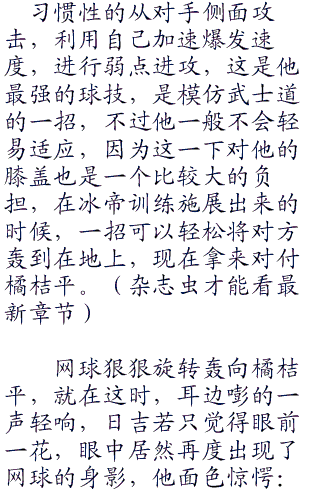 习惯性的从对手侧面攻
击，利用自己加速爆发速
度，进行弱点进攻，这是他
最强的球技，是模仿武士道
的一招，不过他一般不会轻
易适应，因为这一下对他的
膝盖也是一个比较大的负
担，在冰帝训练施展出来的
时候，一招可以轻松将对方
轰到在地上，现在拿来对付
橘桔平。（杂志虫才能看最
新章节）
网球狠狠旋转轰向橘桔
平，就在这时，耳边嘭的一
声轻响，日吉若只觉得眼前
一花，眼中居然再度出现了
网球的身影，他面色惊愕：